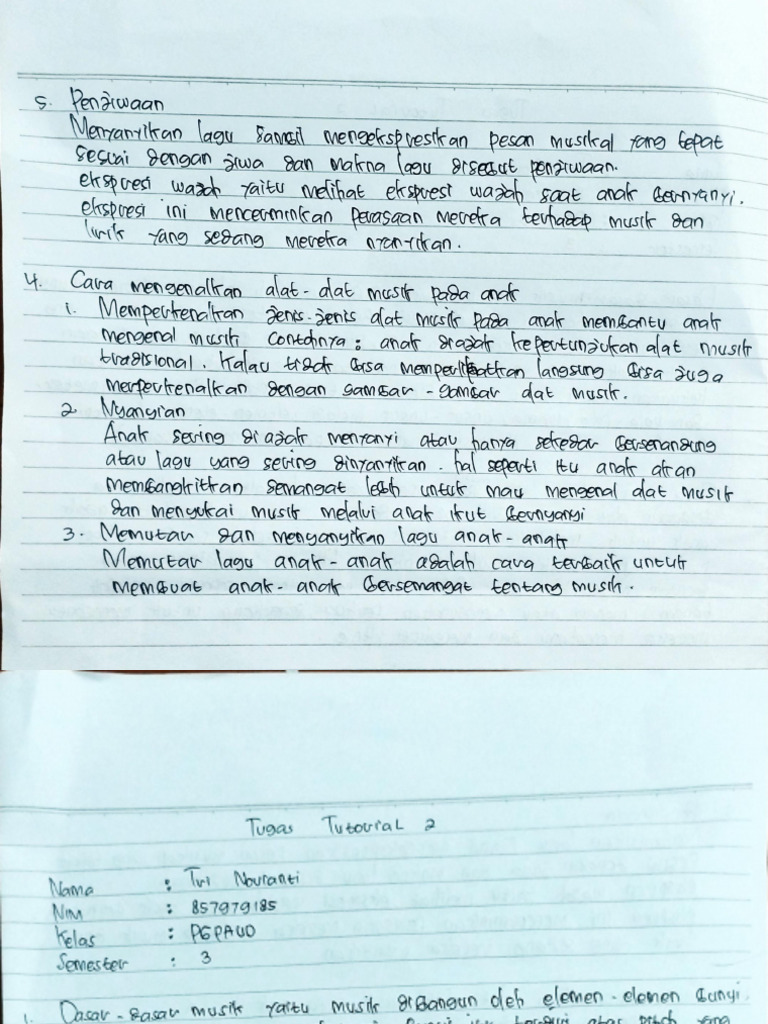 5. Penjiwaan
Menyanyikan lagu sambil mengekspresikan pesan musikal yang tepat
sesuai dengan jiwa dan makna lagu disebut penjiwaan.
ekspresi wajah yaitu melihat ekspresi wajah saat anak bernyanyi.
ekspresi ini mencerminkan perasaan mereka terhadap musik dan
lirik yang sedang mereka nyanyikan.
4. Cara mengenalkan alat-alat musik pada anak
1. Memperkenalkan jenis-jenis alat musik pada anak membantu anak
mengenal musik contohnya: anak diajak kepertunjukan alat musik
tradisional. Kalau tidak bisa memperlihatkan langsung bisa juga
memperkenalkan dengan gambar-gambar alat musik.
2. Nyanyian
Anak sering diajak menyanyi atau hanya sekedar bersenandung
atau lagu yang sering dinyanyikan. hal seperti itu anak akan
membangkitkan semangat lebih untuk mau mengenal alat musik
dan menyukai musik melalui anak ikut bernyanyi
3. Memutar dan menyanyikan lagu anak-anak
Memutar lagu anak-anak adalah cara terbaik untuk
membuat anak-anak bersemangat tentang musik.
Tugas Tutorial 2
Nama : Tri Nouranti
NIM : 857979185
Kelas : PGPAUD
Semester : 3
1. Dasar-dasar musik yaitu musik dibangun oleh elemen-elemen bunyi.